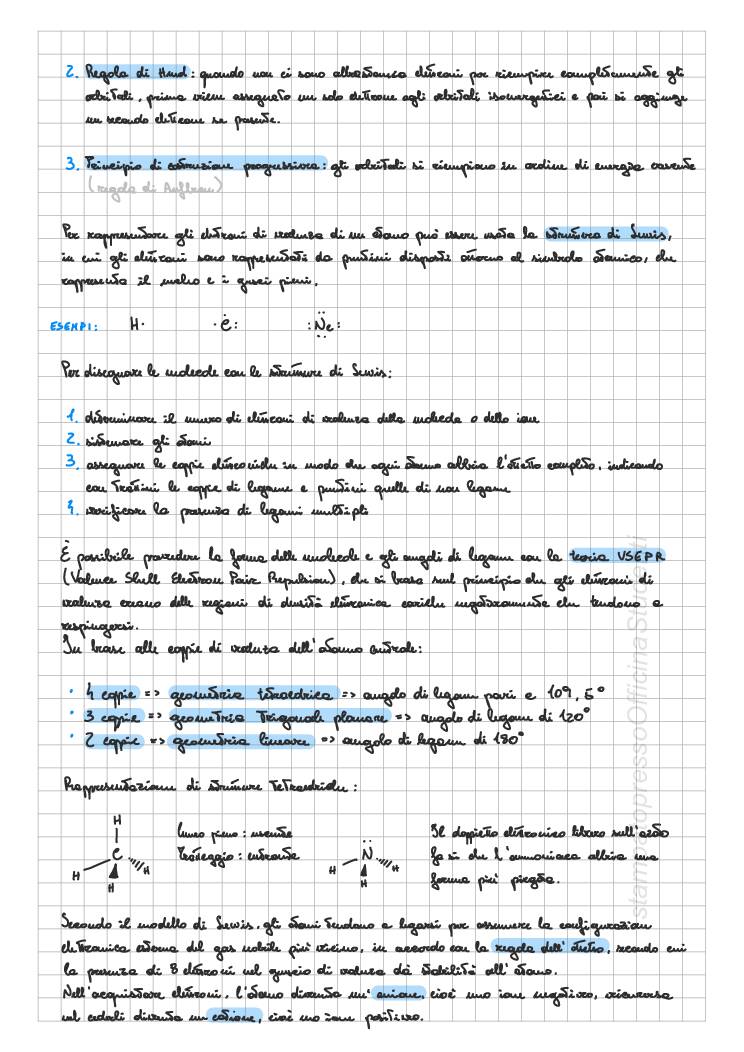 2. Regola di Hund: quando non ci sono abbastanza elettroni per riempire completamente gli
orbitali, prima viene assegnato un solo elettrone agli orbitali isoenergetici e poi si aggiunge
un secondo elettrone se presente.
3. Principio di costruzione progressiva: gli orbitali si riempiono in ordine di energia crescente
(regola di Aufbau)
Per rappresentare gli elettroni di valenza di un atomo può essere usata la struttura di Lewis,
in cui gli elettroni sono rappresentati da puntini disposti attorno al simbolo atomico, che
rappresenta il nucleo e i gusci pieni.
ESEMPI: H· ·C: :Ne:
Per disegnare le molecole con le strutture di Lewis:
1. determinare il numero di elettroni di valenza della molecola o dello ione
2. sistemare gli atomi
3. assegnare le coppie elettroniche in modo che ogni atomo abbia l'ottetto completo, indicando
con trattini le coppie di legame e puntini quelle di non legame
4. verificare la presenza di legami multipli
È possibile prevedere la forma delle molecole e gli angoli di legame con la teoria VSEPR
(Valence Shell Electron Pair Repulsion), che si basa sul principio che gli elettroni di
valenza creano delle regioni di densità elettronica cariche negativamente che tendono a
respingersi.
In base alle coppie di valenza dell'atomo centrale:
· 4 coppie => geometria tetraedrica => angolo di legame pari a 109,5°
· 3 coppie => geometria trigonale planare => angolo di legame di 120°
· 2 coppie => geometria lineare => angolo di legame di 180°
Rappresentazione di strutture tetraedriche:
H
C
H
H
H
Cuneo pieno: uscente
Tratteggio: entrante
N
H
H
H
Il doppietto elettronico libero sull'azoto
fa sì che l'ammoniaca abbia una
forma più piegata.
Secondo il modello di Lewis, gli atomi tendono a legarsi per assumere la configurazione
elettronica esterna del gas nobile più vicino, in accordo con la regola dell'ottetto, secondo cui
la presenza di 8 elettroni nel guscio di valenza dà stabilità all'atomo.
Nell'acquistare elettroni, l'atomo diventa un'anione, cioè uno ione negativo, viceversa
nel cederli diventa un catione, cioè uno ione positivo.
stampato presso Officina Studenti